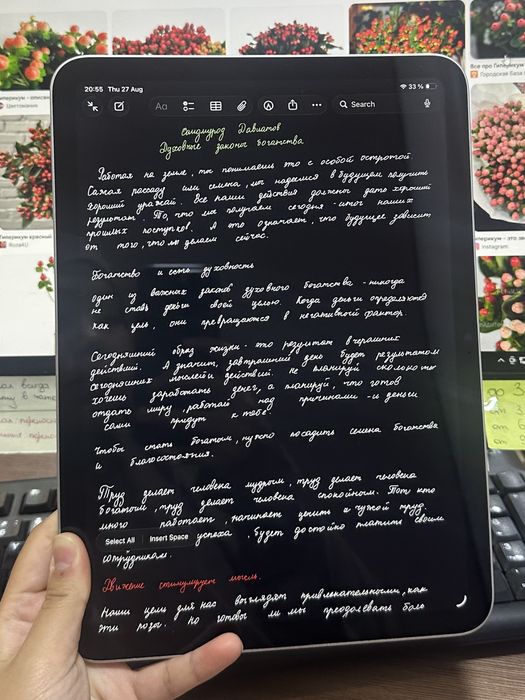 20:55 Thu 27 Aug
33 %
Aa
Search
Саидмурод Давлатов
Духовные законы богатства
Работая на земле, ты понимаешь это с особой остротой.
Сажая рассаду или семена, мы надеемся в будущем получить
хороший урожай. Все наши действия должны дать хороший
результат. То, что мы получаем сегодня - итог наших
прошлых поступков. А это означает, что будущее зависит
от того, что мы делаем сейчас.
Богатство и есть духовность
один из важных законов духовного богатства - никогда
не ставь деньги своей целью. Когда деньги определяются
как цель, они превращаются в негативный фактор.
Сегодняшний образ жизни - это результат вчерашних
действий. А значит, завтрашний день будет результатом
сегодняшних мыслей и действий. Не планируй сколько ты
хочешь заработать денег, а планируй, что готов
отдать миру, работай над причинами - и деньги
сами придут к тебе.
Чтобы стать богатым, нужно посадить семена богатства
и благосостояния.
Труд делает человека мудрым, труд делает человека
богатым, труд делает человека спокойным. Тот кто
много работает, начинает ценить и чужой труд.
Select All Insert Space успеха, будет достойно платить своим
сотрудникам.
Движение стимулирует мысль.
Наши цели для нас выглядят привлекательными, как
эти розы. Но готовы ли мы преодолевать боль
Все про Гиперикум
Городская база
Цветовик
Гиперикум красный
Roza4U
instagram